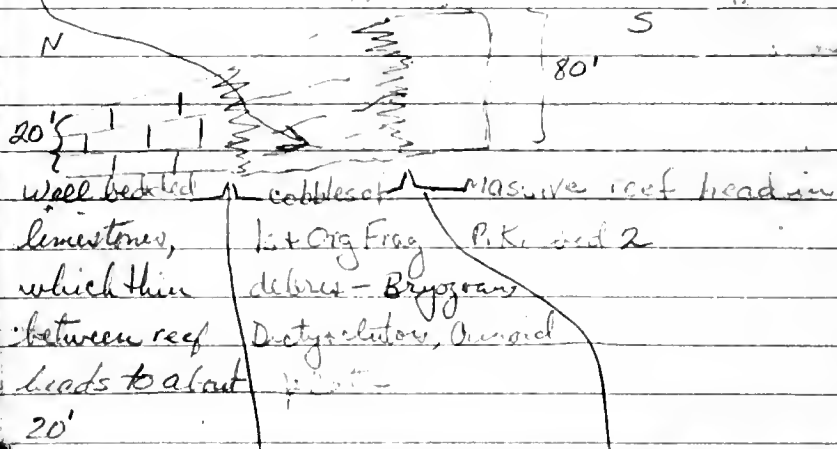 N
S
80'
20'
Well bedded
limestones,
which thin
between reef
heads to about
20'
cobbles of
Ls + Org Frag
debris - Bryozoans
massive reef head in
bed 2